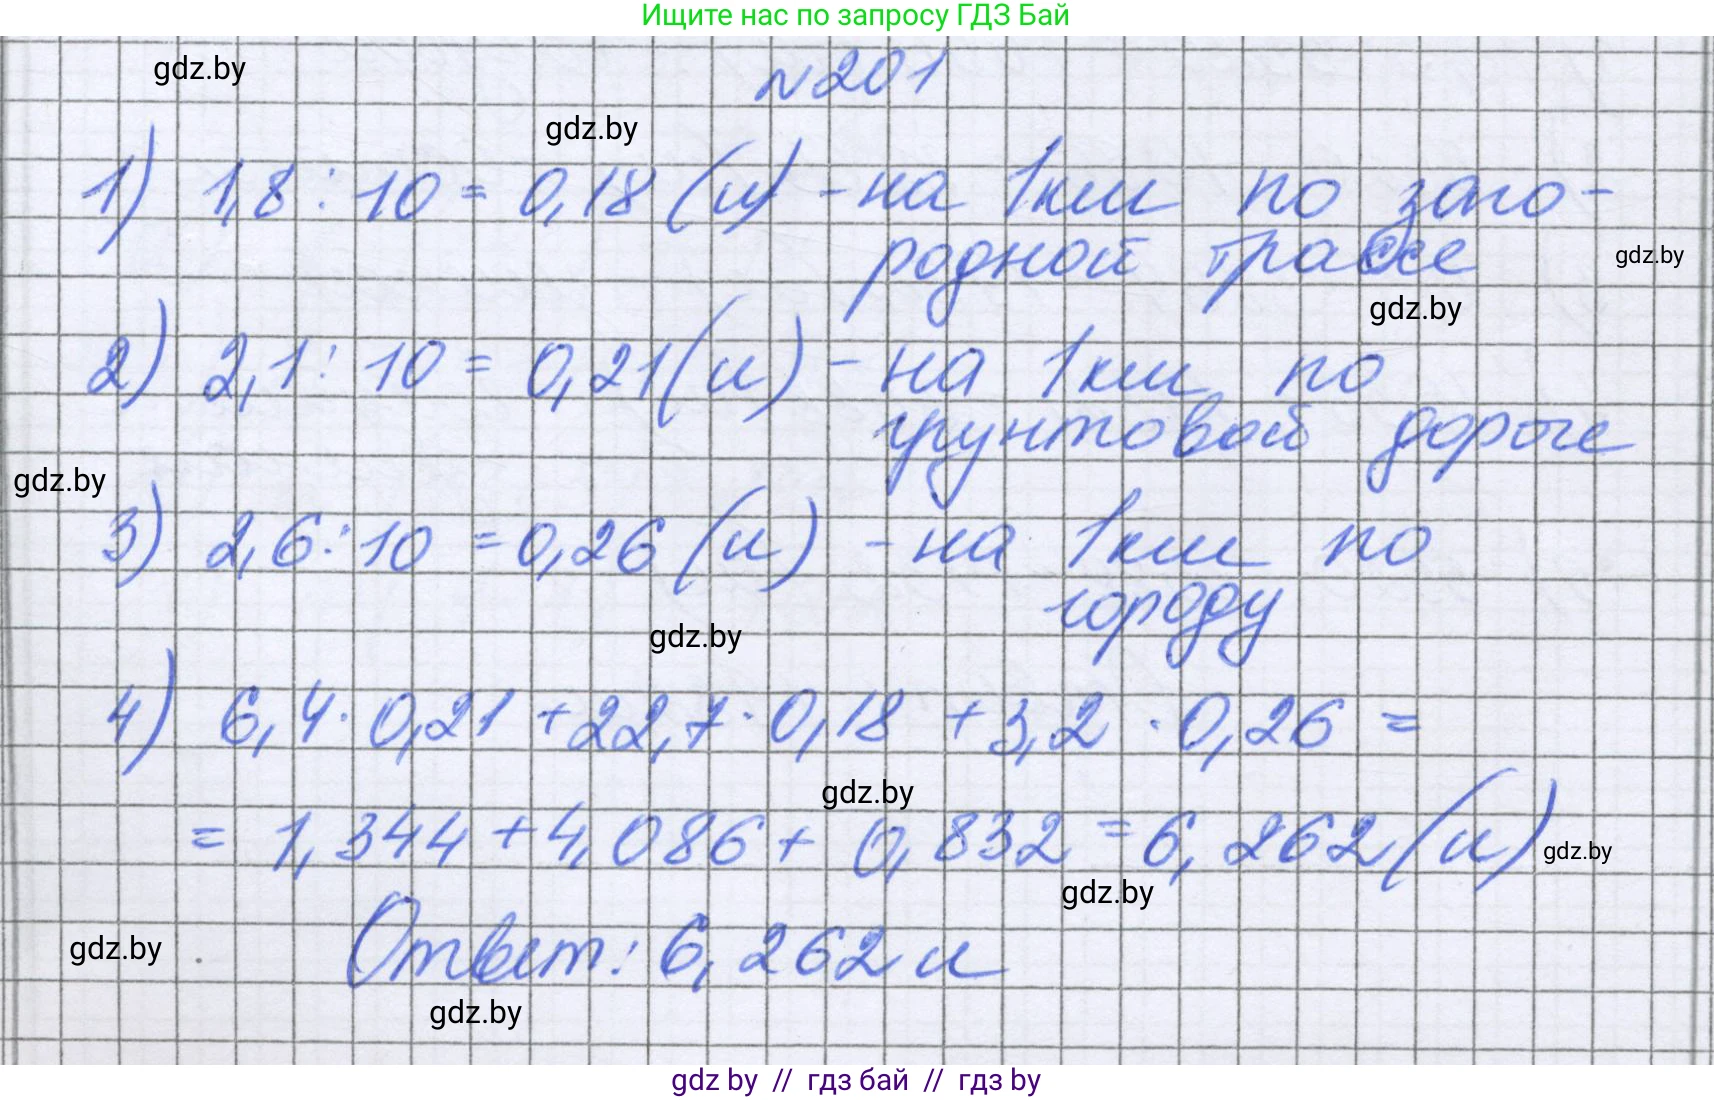 Ищите нас по запросу ГДЗ Бай
gdz.by
№201
gdz.by
1) 1,8 : 10 = 0,18 (л) - на 1км по заго-
родной трассе
gdz.by
gdz.by
2) 2,1 : 10 = 0,21 (л) - на 1км по
грунтовой дороге
gdz.by
3) 2,6 : 10 = 0,26 (л) - на 1км по
городу
gdz.by
4) 6,4 · 0,21 + 22,7 · 0,18 + 3,2 · 0,26 =
gdz.by
= 1,344 + 4,086 + 0,832 = 6,262 (л)
gdz.by
gdz.by
Ответ: 6,262 л
gdz.by
gdz.by
gdz by // гдз бай // гдз by